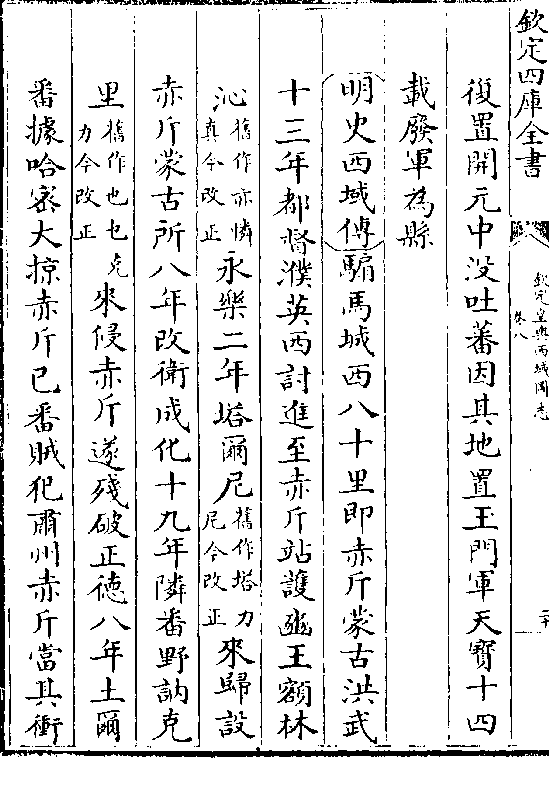 欽定四庫全書
欽定皇輿西域圖志
卷八
二十
復置開元中没吐蕃因其地置玉門軍天寶十四
載廢軍為縣
明史西域傳騸馬城西八十里即赤斤蒙古洪武
十三年都督濮英西討進至赤斤站護豳王額林
沁舊作亦憐真今改正永樂二年塔爾尼舊作塔力尼今改正來歸設
赤斤蒙古所八年改衛成化十九年隣番野訥克
里舊作也乜克力今改正來侵赤斤遂殘破正德八年土爾
番據哈密大掠赤斤已番賊犯肅州赤斤當其衝